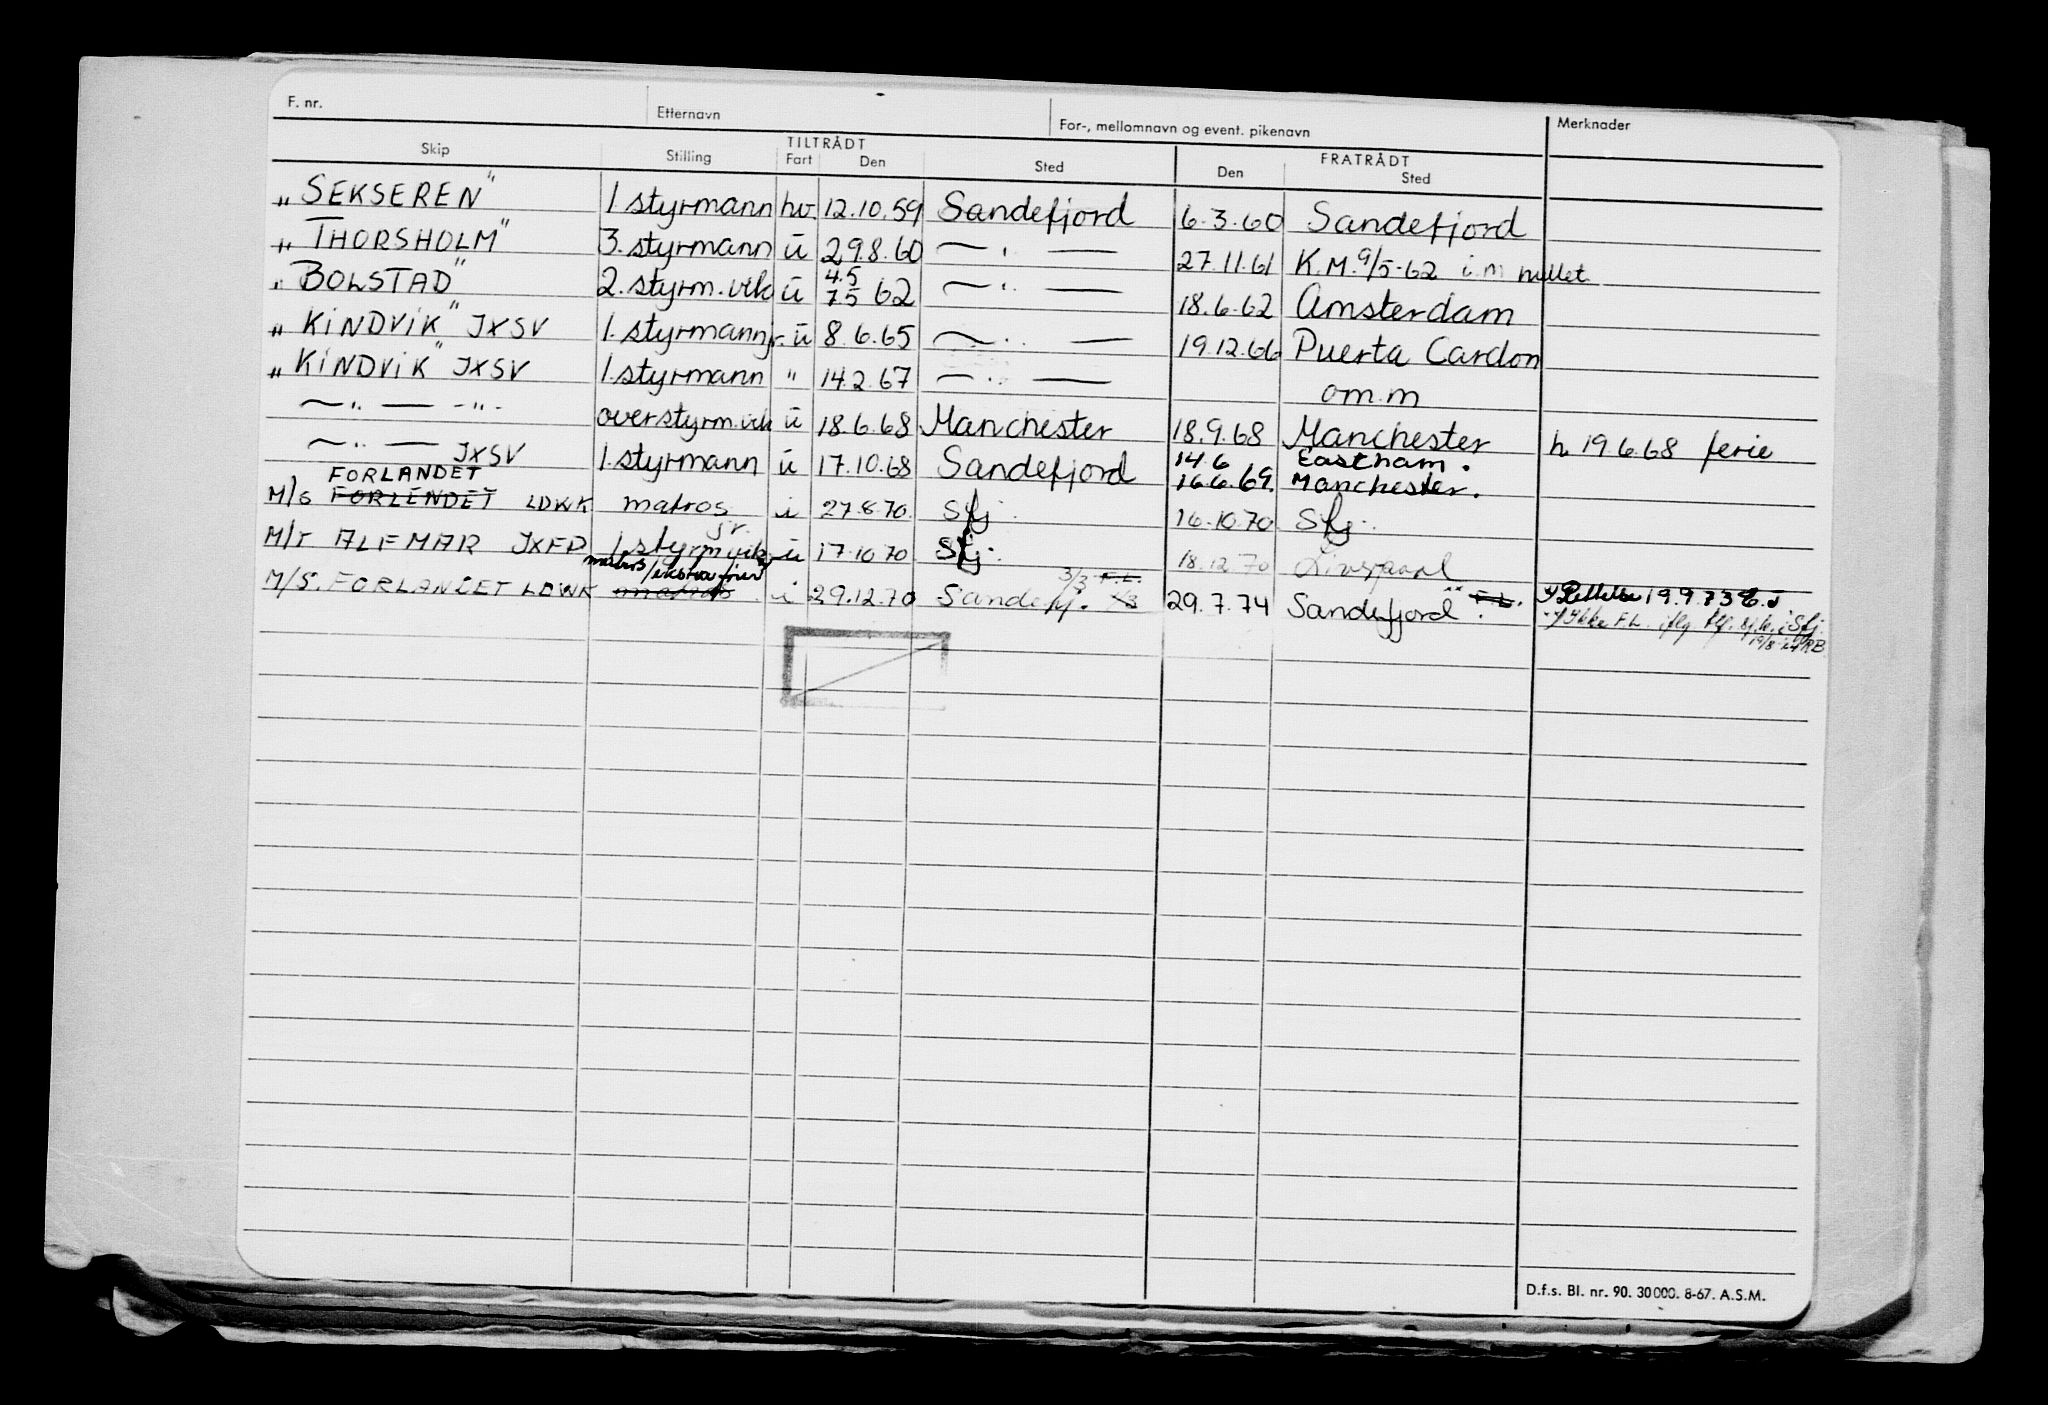 F. nr. Etternavn For-, mellomnavn og event. pikenavn Merknader
Skip Stilling TILTRÅDT Fart Den Sted FRATRÅDT Den Sted
„SEKSEREN" 1. styrmann hv. 12.10.59 Sandefjord 6.3.60 Sandefjord
„THORSHOLM" 3. styrmann ū 29.8.60 —"— 27.11.61 K.M. 9/5-62 i.m nullet
„BOLSTAD" 2. styrm. vik ū 4.5 7.5 62 —"— 18.6.62 Amsterdam
„KINDVIK" JXSV 1. styrmann jr. ū 8.6.65 —"— 19.12.66 Puerta Cardon
„KINDVIK" JXSV 1. styrmann " 14.2.67 —"— om.m
—"— -"- overstyrm. vik ū 18.6.68 Manchester 18.9.68 Manchester h. 19.6.68 ferie
—"— JXSV 1. styrmann ū 17.10.68 Sandefjord 14.6 Eastham. 16.6.69. Manchester.
M/S FORLENDET FORLANDET LDWK matros i 27.8.70. Sfj. 16.10.70 Sfj.
M/T ALFMAR JXFD 1 styrm vik jr. ū 17.10.70 Sfj. 18.12.70 Liverpool
M/S. FORLANDET LDWK matros matros/ekstra fører i 29.12.70 Sandefj. 3/3 F.L. 29.7.74 Sandefjord. xx F.L. Rettelse 19.9.73
Ikke F.L. iflg. tlf. Sfj. 19/8 RB.
D.f.s. Bl. nr. 90. 30000. 8-67. A.S.M.